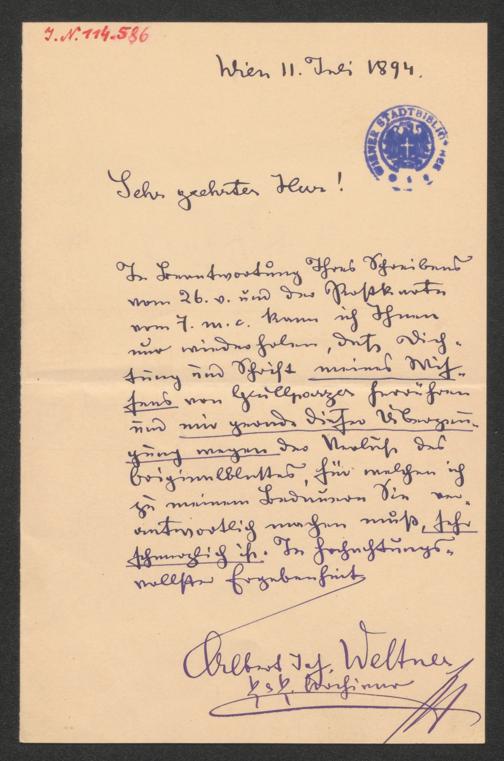 J. N. 114.586
Wien 11. Juli 1894.
WIENER STADTBIBLIOTHEK
Sehr geehrter Herr!
In Beantwortung Ihres Schreibens
vom 26. v. und der Postkarte
vom 7. m. c. kann ich Ihnen
nur wiederholen, daß Dich-
tung und Schrift meines Wis-
sens von Grillparzer herrühren
und mir gerade dieser Überzeu-
gung wegen der Verlust des
Originalblattes, für welchen ich
zu meinem Bedauern Sie ver-
antwortlich machen muß, sehr
schmerzlich ist. In hochachtungs-
vollster Ergebenheit
Albert Jos. Weltner
k. k. Archivar